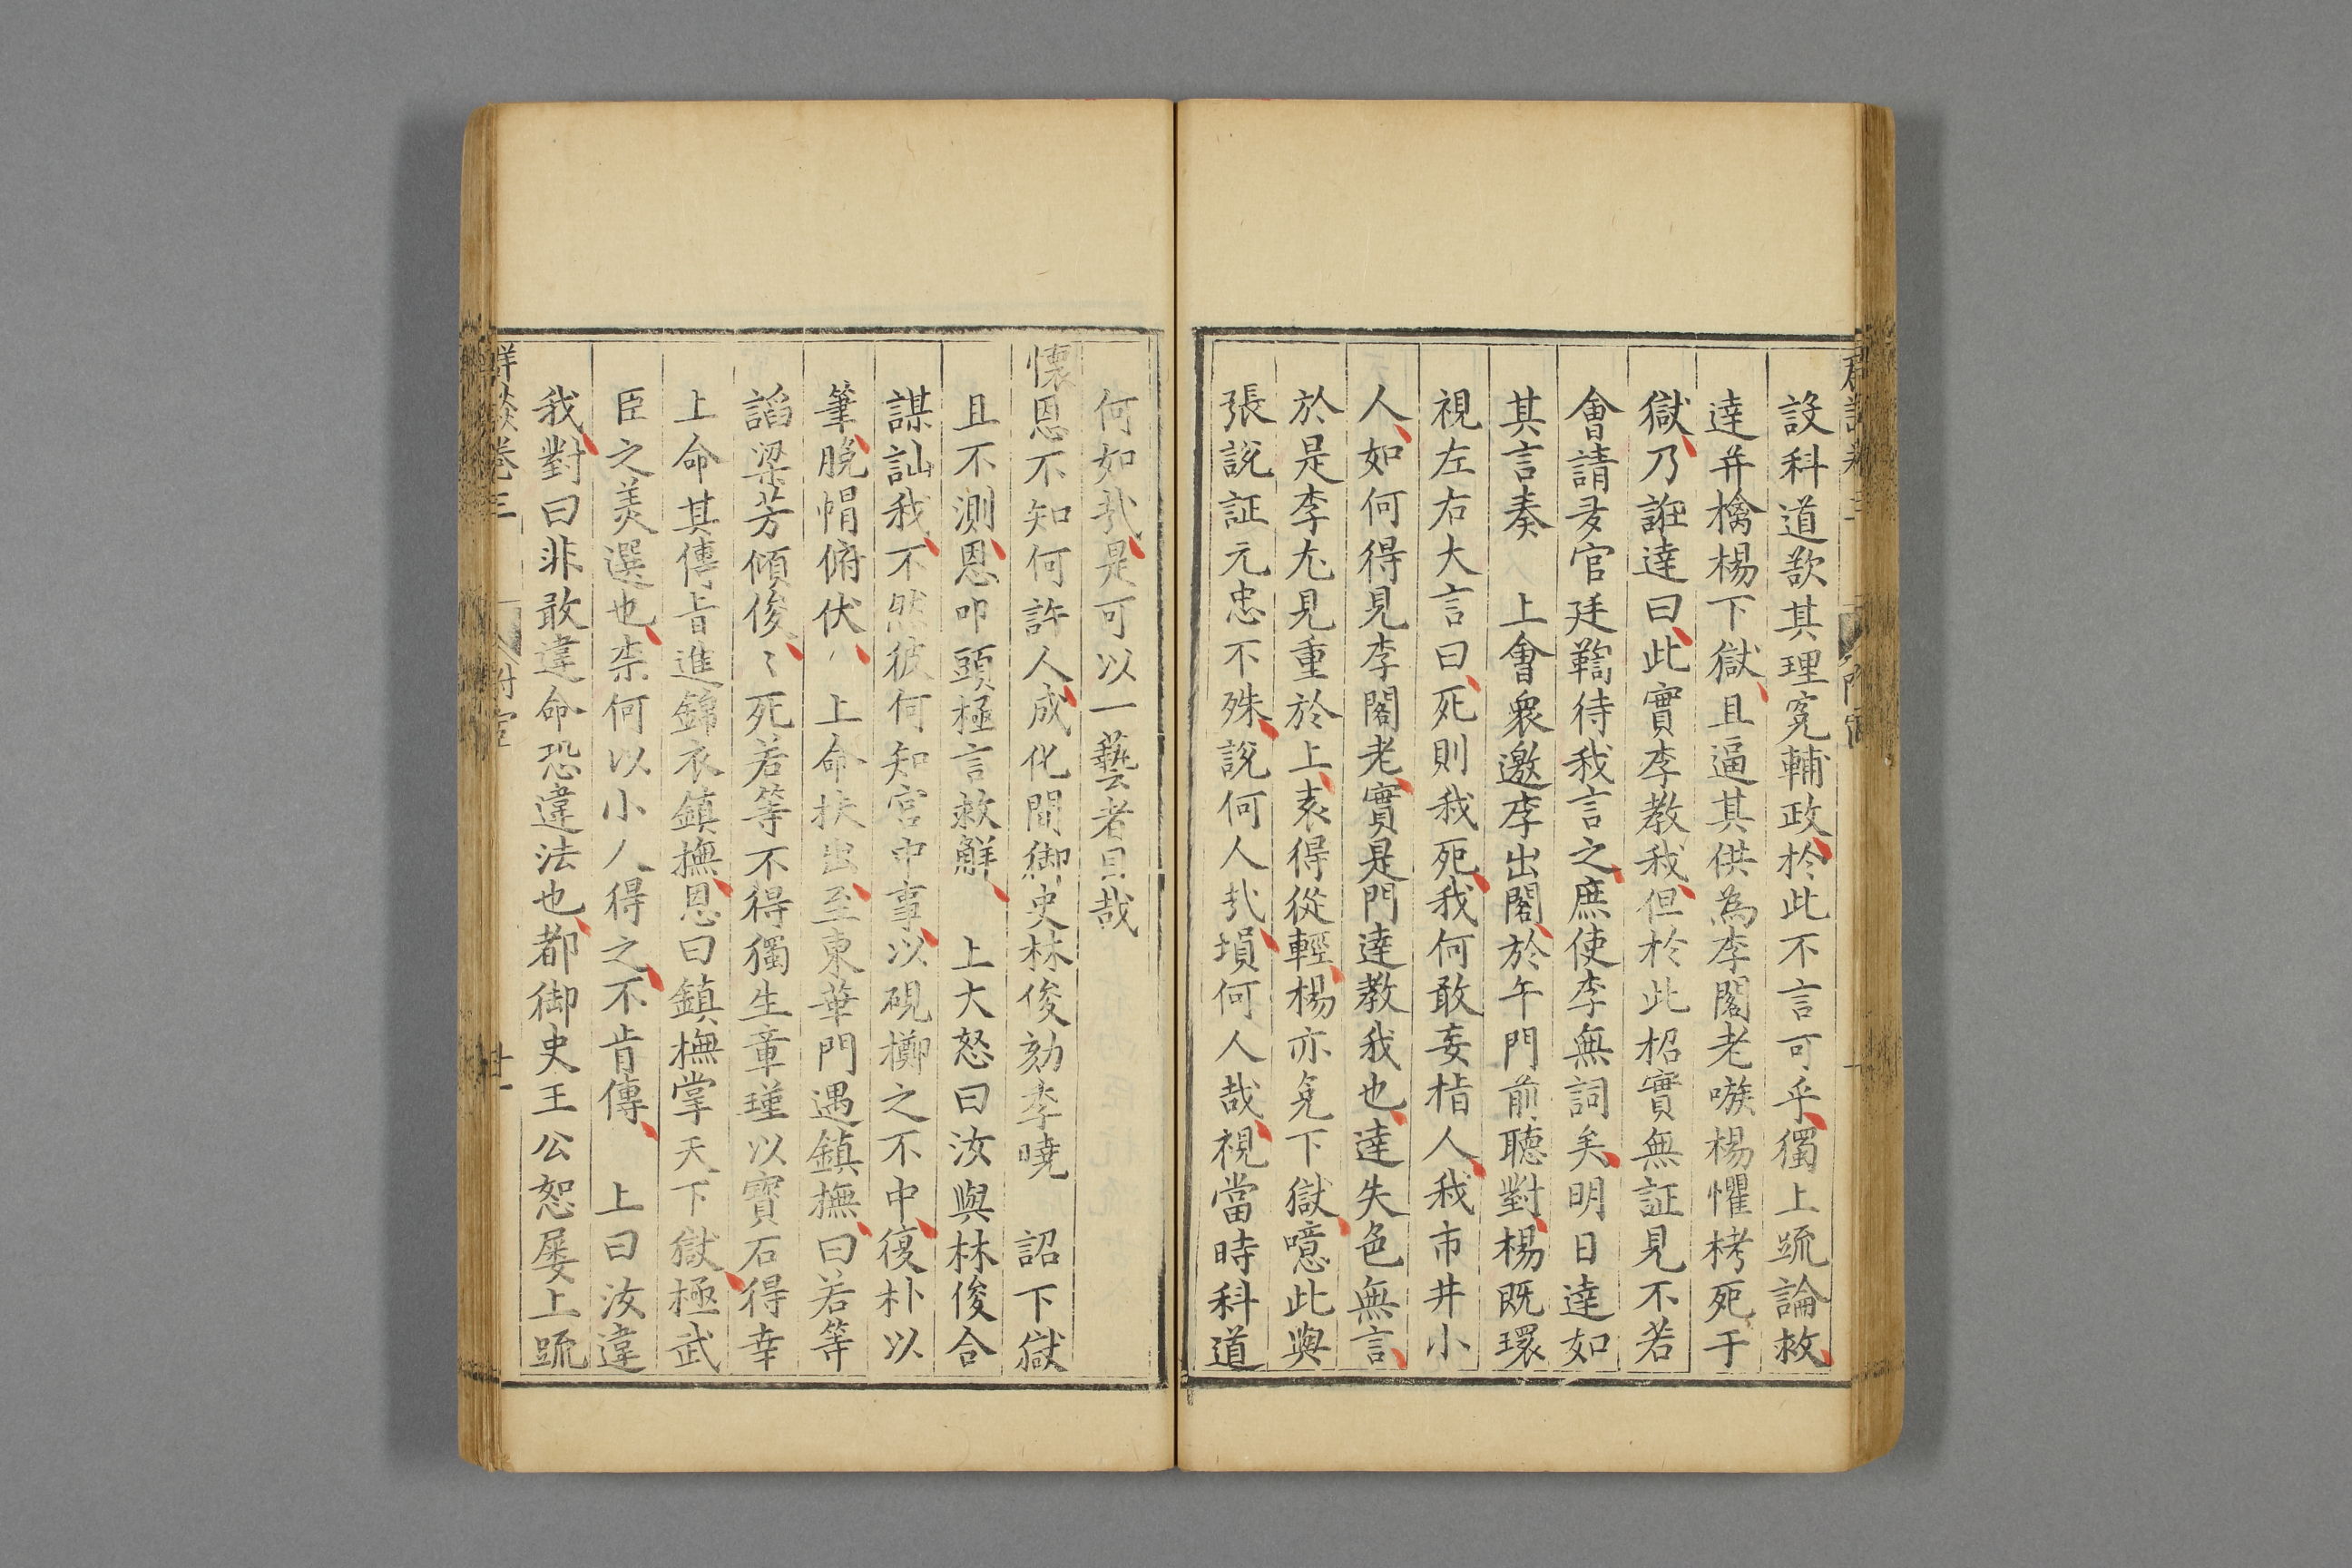 設科道欲其理寃輔政於此不言可乎獨上疏論救
達并擒楊下獄且逼其供為李閣老嗾楊懼栲死于
獄乃誑達曰此實李教我但於此招實無証見不若
會請多官廷鞫待我言之庶使李無詞矣明日達如
其言奏 上會衆邀李出閣於午門前聽對楊既環
視左右大言曰死則我死我何敢妄指人我市井小
人如何得見李閣老實是門達教我也達失色無言
於是李尤見重於上袁得從輕楊亦免下獄噫此與
張說証元忠不殊說何人㦲塤何人哉視當時科道
何如㦲是可以一藝者目哉
懷恩不知何許人成化間御史林俊劾李曉 詔下獄
且不測恩叩頭極言救解 上大怒曰汝與林俊合
謀訕我不然彼何知宮中事以硯擲之不中復朴以
筆脫帽俯伏 上命扶出至東華門遇鎮撫曰若等
謟梁芳傾俊〻死若等不得獨生章瑾以寳石得幸
上命其傳旨進錦衣鎮撫恩曰鎮撫掌天下獄極武
臣之美選也柰何以小人得之不肯傳 上曰汝違
我對曰非敢違命恐違法也都御史王公恕屡上疏
群談卷三 附官 廿一